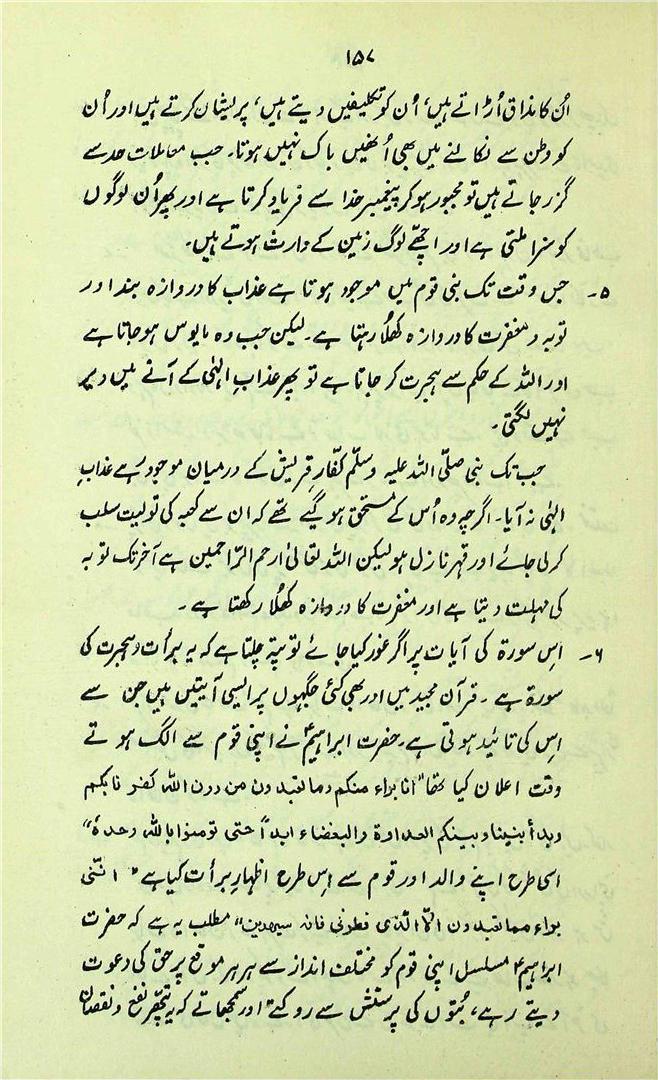 ۱۵۷
اُن کا مذاق اُڑاتے ہیں، اُن کو تکلیفیں دیتے ہیں، پریشان کرتے ہیں اور اُن
کو وطن سے نکالنے میں بھی اُنھیں باک نہیں ہوتا۔ جب معاملات حد سے
گزر جاتے ہیں تو مجبور ہو کر پیغمبر خدا سے فریاد کرتا ہے اور پھر اُن لوگوں
کو سزا ملتی ہے اور اچھّے لوگ زمین کے وارث ہوتے ہیں۔
۵۔ جس وقت تک بنی قوم میں موجود ہوتا ہے عذاب کا دروازہ بند اور
توبہ و مغفرت کا دروازہ کھُلا رہتا ہے۔ لیکن جب وہ مایوس ہو جاتا ہے
اور اللہ کے حکم سے ہجرت کر جاتا ہے تو پھر عذابِ الٰہی کے آنے میں دیر
نہیں لگتی۔
جب تک نبی صلّی اللہ علیہ وسلّم کفّارِ قریش کے درمیان موجود رہے عذابِ
الٰہی نہ آیا۔ اگرچہ وہ اُس کے مستحق ہو گیے تھے کہ ان سے کعبہ کی تولیت سلب
کر لی جائے اور قہر نازل ہو لیکن اللہ تعالیٰ ارحم الرّاحمین ہے آخر تک توبہ
کی مہلت دیتا ہے اور مغفرت کا دروازہ کھُلا رکھتا ہے۔
۶۔ اِس سورۃ کی آیات پر اگر غور کیا جائے تو پتہ چلتا ہے کہ یہ برأت و ہجرت کی
سورۃ ہے۔ قرآن مجید میں اور بھی کئی جگہوں پر ایسی آیتیں ہیں جن سے
اِس کی تائید ہوتی ہے۔ حضرت ابراہیمؑ نے اپنی قوم سے الگ ہوتے
وقت اعلان کیا تھا "انا براء منکم ومما تعبدون من دون اللہ کفرنا بکم
وبدأ بیننا وبینکم العداوۃ والبغضاء ابداً حتی تومنوا باللہ وحدہٗ"
اسی طرح اپنے والد اور قوم سے اِس طرح اظہارِ برأت کیا ہے "انّنی
براء مما تعبدون الّا الّذی فطرنی فانہ سیھدین" مطلب یہ ہے کہ حضرت
ابراہیمؑ مسلسل اپنی قوم کو مختلف انداز سے ہر ہر موقع پر حق کی دعوت
دیتے رہے، بُتوں کی پرستش سے روکتے اور سمجھاتے کہ یہ پتھّر نفع و نقصان